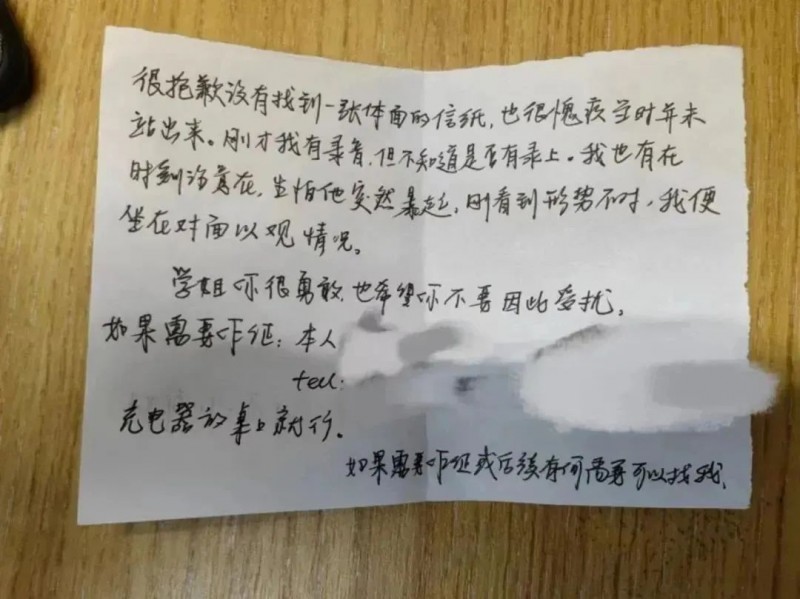 很抱歉没有找到一张体面的信纸,也很愧疚当时并未
站出来。刚才我有录音,但不知道是否有录上。我也有在
时刻注意在,生怕他突然暴起,刚看到形势不对,我便
坐在对面以观情况。
学姐你很勇敢,也希望你不要因此受扰。
如果需要作证:本人
tel:
充电器放桌上就行。
如果需要作证或后续有何需要可以找我.